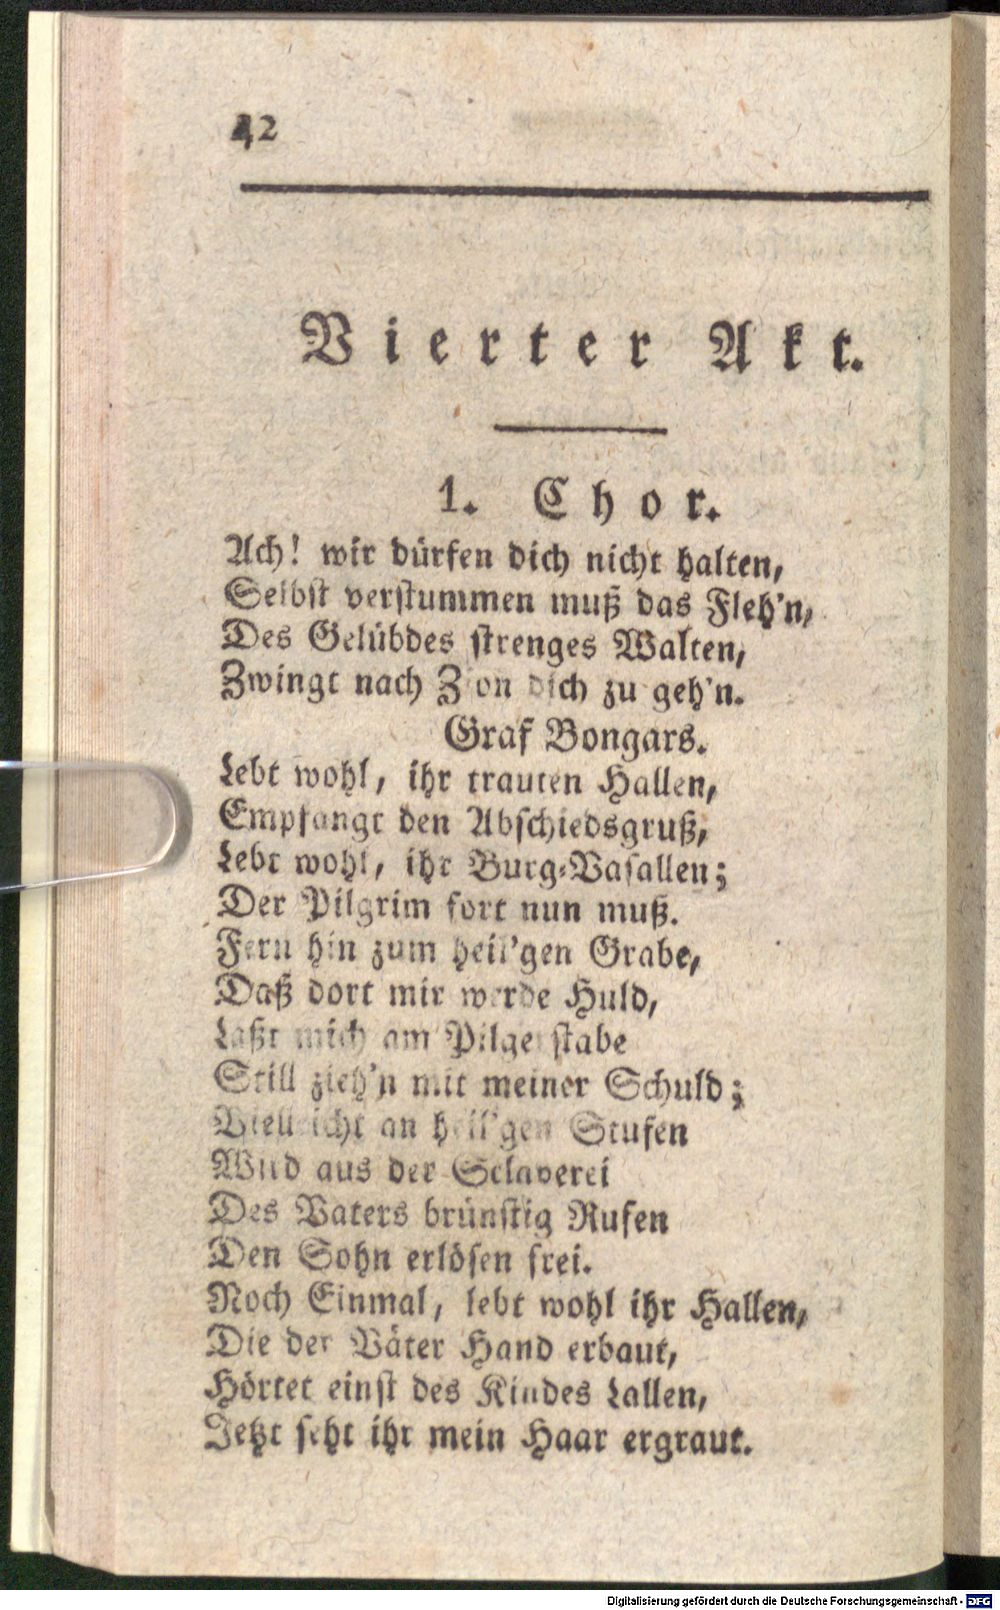 42
Vierter Akt.
1. Chor.
Ach! wir dürfen dich nicht halten,
Selbst verstummen muß das Fleh'n,
Des Gelübdes strenges Walten,
Zwingt nach Zion dich zu geh'n.
Graf Bongars.
Lebt wohl, ihr trauten Hallen,
Empfangt den Abschiedsgruß,
Lebt wohl, ihr Burg-Vasallen;
Der Pilgrim fort nun muß.
Fern hin zum heil'gen Grabe,
Daß dort mir werde Huld,
Laßt mich am Pilgerstabe
Still zieh'n mit meiner Schuld;
Vielleicht an heil'gen Stufen
Wird aus der Sclaverei
Des Vaters brünstig Rufen
Den Sohn erlösen frei.
Noch Einmal, lebt wohl ihr Hallen,
Die der Väter Hand erbaut,
Hörtet einst des Kindes Lallen,
Jetzt seht ihr mein Haar ergraut.
Digitalisierung gefördert durch die Deutsche Forschungsgemeinschaft - DFG